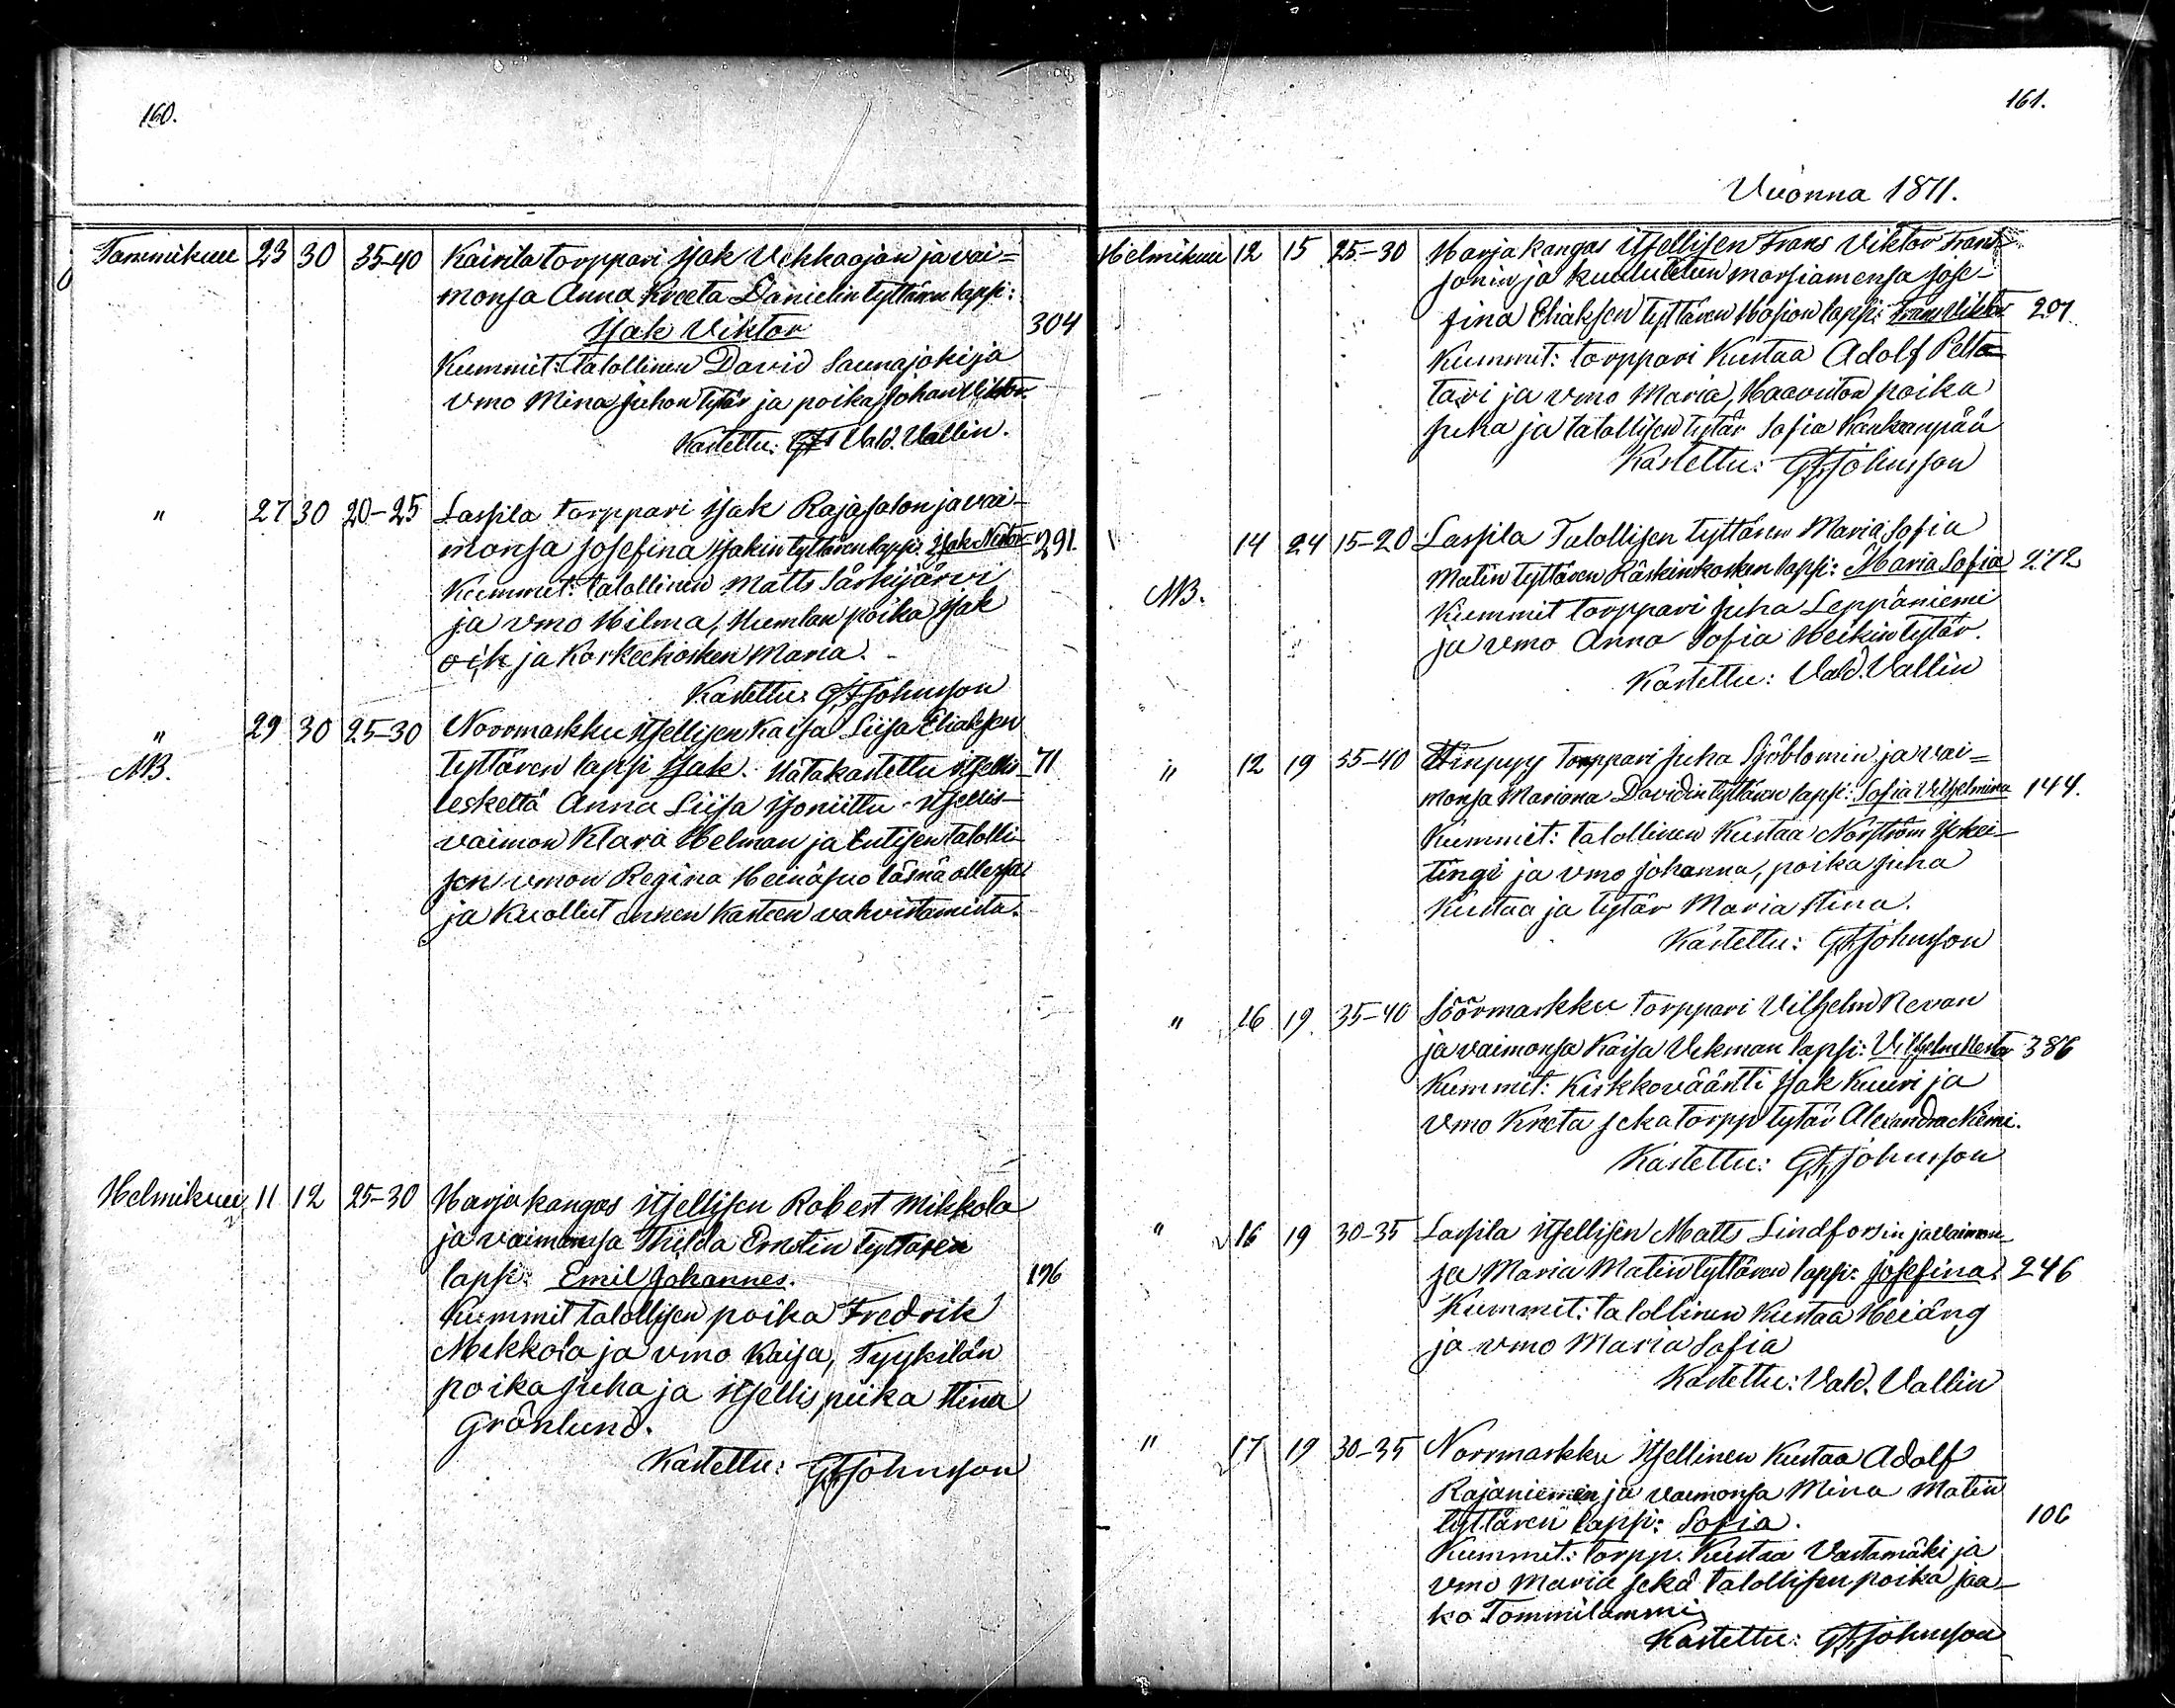 160.
Tammikuu 23 30 35-40 Kairila torppari Isak Vehkaojan ja vai=
monsa Anna Kreeta Danielin tyttären lapsi:
Isak Viktor 304
Kummit: talollinen David Saunajoki ja
vmo Mina Juhon tytär ja poika Johan Viktor.
Kastettu: Vald. Vallin.
" 27 30 20-25 Laspila torppari Isak Rajasalon ja vai-
monsa Josefina Isakin tyttären lapsi: Isak Nestor 291.
Kummit: talollinen Matts Särkijärvi
ja vmo Hilma, Humlan poika Isak
ja Korkeekosken Maria.
Kastettu: GF Johnsson
" 29 30 25-30 Norrmarkku itsellisen Kaisa Liisa Eliaksen
NB. tyttären lapsi Isak. Hätäkastettu itsellis- 71
leskeltä Anna Liisa Isoniittu itsellis-
vaimon Klara Helman ja Entisen talolli-
sen vmon Regina Heinäsuo läsnä ollessa
ja kuollut ennen kasteen vahvistamista.
Helmikuu 11 12 25-30 Harjakangas itsellisen Robert Mikkola
ja vaimonsa Thilda Ernstin tyttären
lapsi: Emil Johannes. 196
Kummit talollisen poika Fredrik
Mikkola ja vmo Kaisa, Tyykilän
poika Juha ja itsellis piika Stina
Grönlund.
Kastettu: GF Johnsson
161.
Vuonna 1871.
Helmikuu 12 15 25-30 Harjakangas itsellisen Frans Viktor Frans
sonin ja kuulutetun morsiamensa Jose-
fina Eliaksen tyttären Hosion lapsi: Frans Viktor 201
Kummit: torppari Kustaa Adolf Pelto-
tari ja vmo Maria, Haaviston poika
Juha ja talollisen tytär Sofia Kankaanpää
Kastettu: GF Johnsson
" 14 24 15-20 Laspila Talollisen tyttären Maria Sofia
NB. Matin tyttären Räskinkosken lapsi: Maria Sofia 272
Kummit torppari Juha Leppäniemi
ja vmo Anna Sofia Heikin tytär.
Kastettu: Vald. Vallin
" 12 19 35-40 Finpyy torppari Juha Sjöblomin ja vai=
monsa Mariana Davidin tyttären lapsi: Sofia Vilhelmina 144.
Kummit: talollinen Kustaa Norström
tingi ja vmo Johanna, poika Juha
Kustaa ja tytär Maria Stina.
Kastettu: GF Johnsson
" 16 19 35-40 Söörmarkku torppari Vilhelm Nevan
ja vaimonsa Kaisa Vekman lapsi: Vilhelm Nestor 386
Kummit: Kirkkoväärtti Isak Kuuri ja
vmo Kreta seka torpp tytär Alexandra Niemi.
Kastettu: GF Johnsson
" 16 19 30-35 Laspila itsellisen Matts Lindforsin ja vaimon-
sa Maria Matin tyttären lapsi: Josefina 246
Kummit: talollinen Kustaa Heiäng
ja vmo Maria Sofia
Kastettu: Vald. Vallin
" 17 19 30-35 Norrmarkku itsellinen Kustaa Adolf
Rajaniemen ja vaimonsa Mina Matin
tyttären lapsi: Sofia. 106
Kummit: torpp. Kustaa Vastamäki ja
vmo Maria sekä talollisen poika Jaa-
ko Tommilammi
Kastettu: GF Johnsson